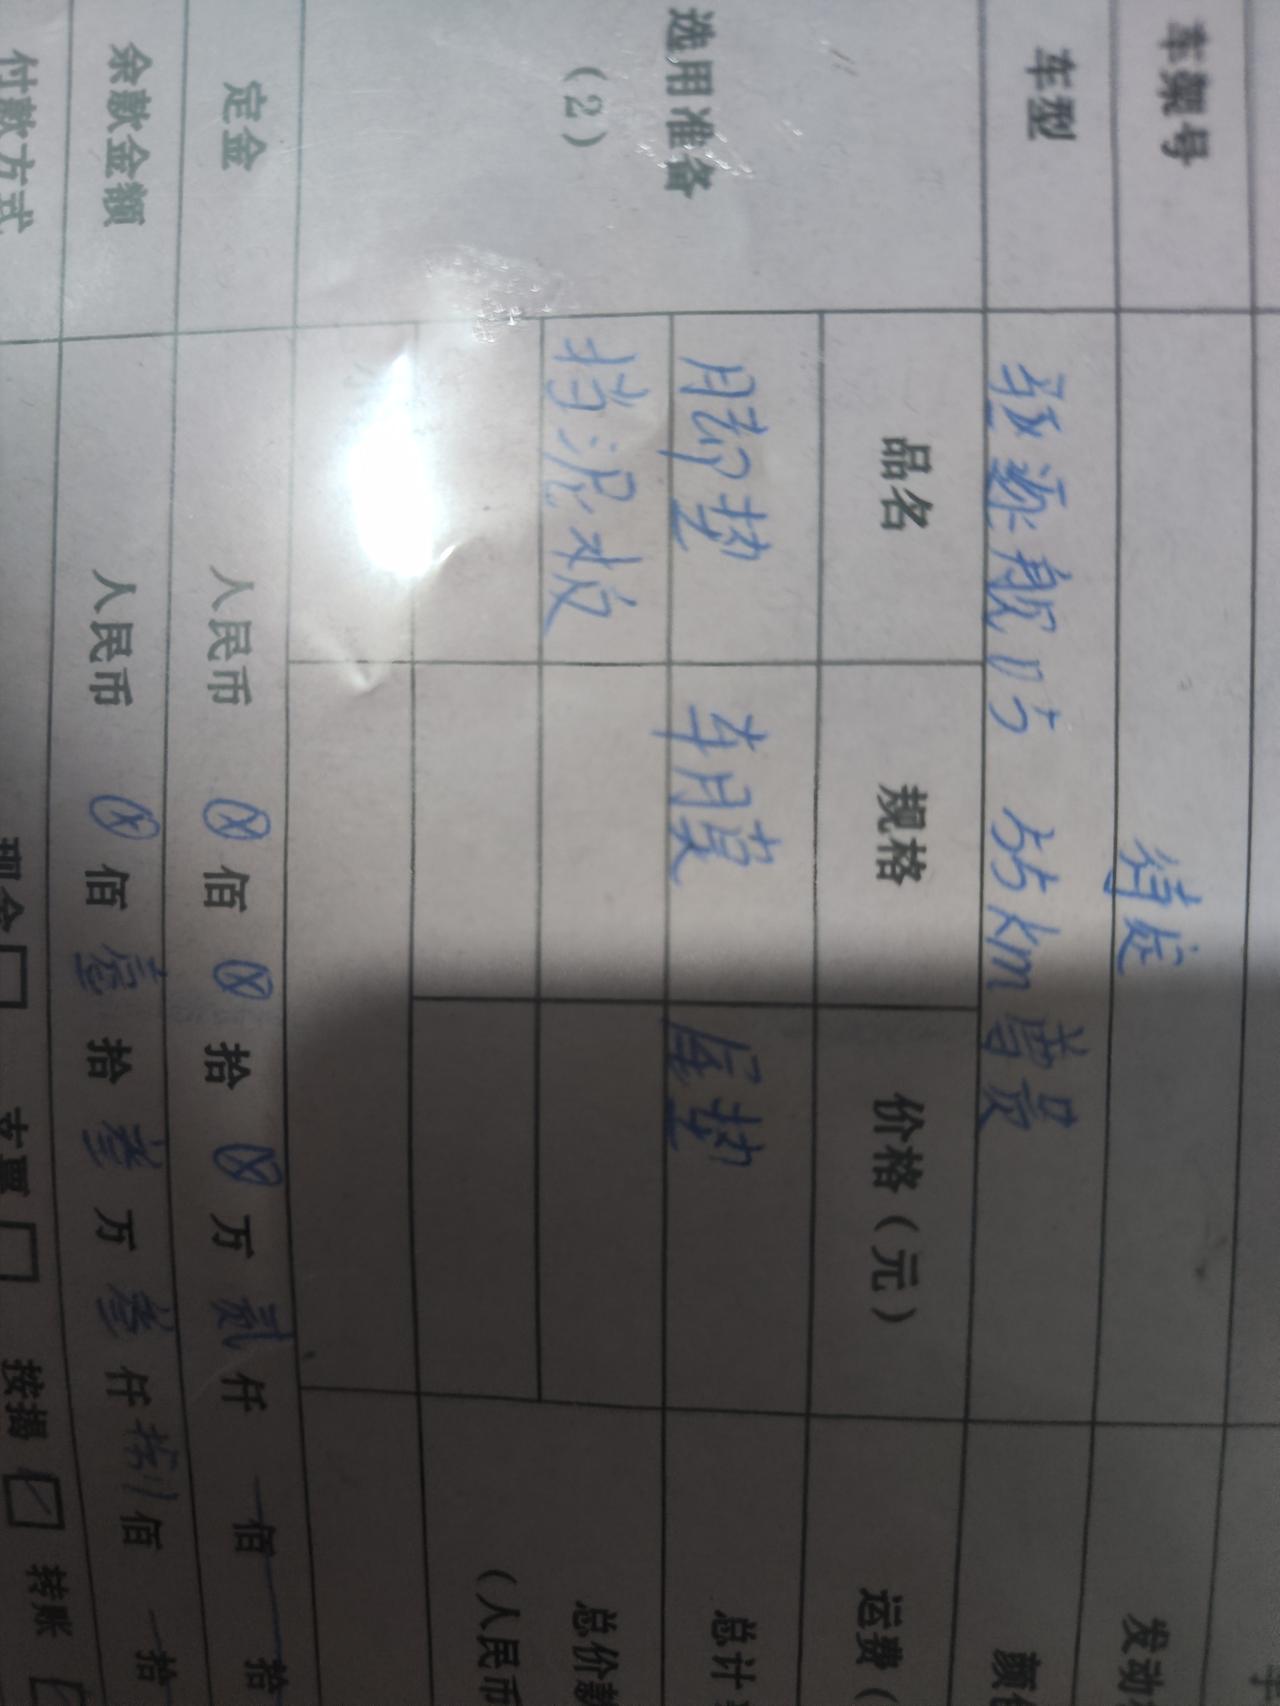 车架号 待定 发动
车型 驱逐舰05 55km 尊贵 颜
品名 规格 价格(元) 运费(
选用准备 脚垫 车膜 后垫 总计
(2) 挡泥板 总价款
(人民币
定金 人民币 ⊗佰⊗拾⊗万贰仟—佰—拾
余款金额 人民币 ⊗佰壹拾叁万叁仟捌佰—拾
付款方式 现金□ 支票□ 按揭☑ 转账